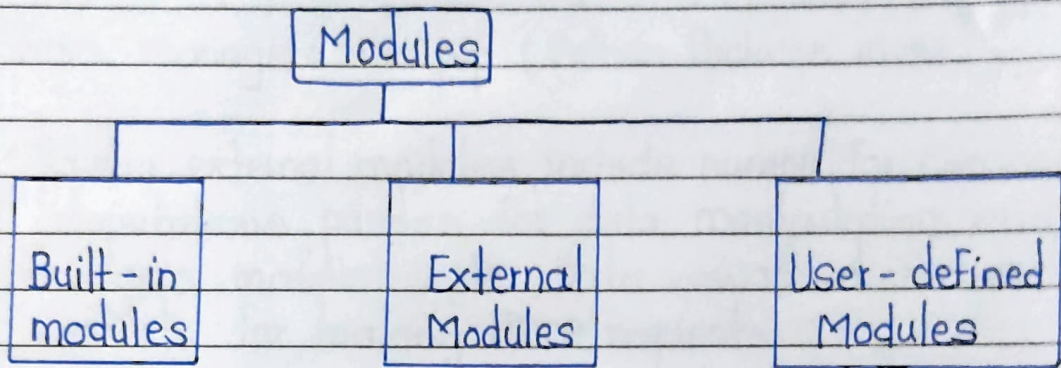 Modules
Built-in
modules
External
Modules
User-defined
Modules